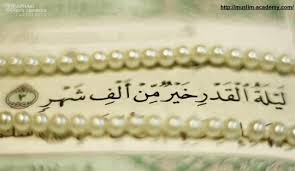 http://muslim.academy.com/
لَيْلَةُ ٱلْقَدْرِ خَيْرٌ مِّنْ أَلْفِ شَهْرٍ ٣